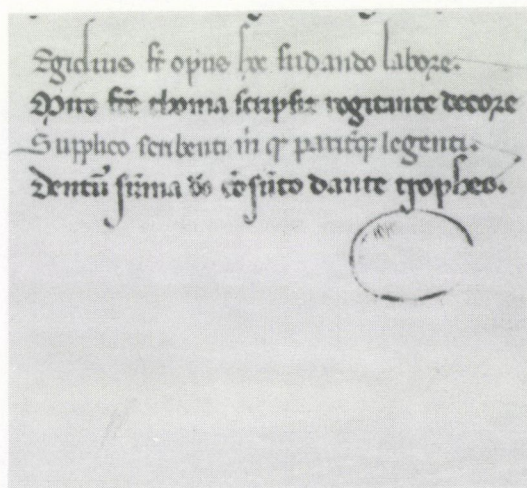 Egidius fr̄ opus hoc sudando labore.
fr̄e thoma scripsit rogitante decore
Supplico scribenti pariterqꝫ legenti.
Dentur̄ sūma dante tropheo.